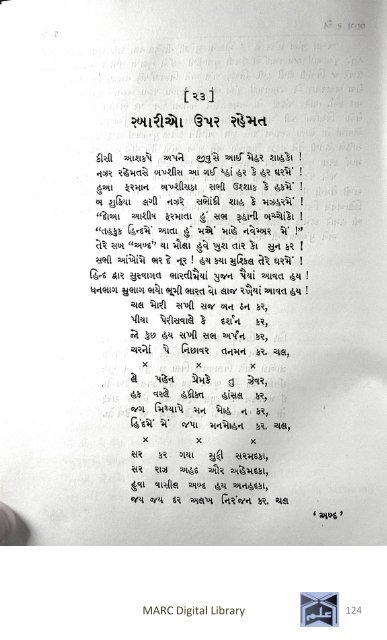 [ ૨૩ ]
રબારીઓ ઉપર રહેમત
કીસી આશકપે અપને જીવુસે આઈ મેહર શાહકો !
નઝર રહેમતસે બખ્શીસ આ ગઈ ય્હાં હર કે હર ઘરમેં !
હુઆ ફરમાન બખ્શીસકા સભી ઉશ્શાક કે હકમેં !
બ શુકિયા લગી નઝરે સભોંકી શાહ કે મઝહરમેં !
"દોઆ આશીષ ફરમાતા હું સભ રૂહાની બચ્ચોંકો !
"તહકુક હિન્દમેં આતા હું મએં માહે નવેમ્બર મેં !"
તેરે સખ "અબ્દ" યા મૌલા હુવે ખુશ તાર કો સુન કર !
સભી આંખોંમેં ભર દે નૂર ! હય કયા મુશ્કિલ તેરે ઘરમેં !
હિન્દ દ્વાર સુસ્વાગત ભારતીમૈયાં પુજન પૈયાં આવત હય !
ધનભાગ સુભાગ ભયો ભૂમી ભારત વો લાજ રખૈયાં આવત હય !
ચલ મોરી સખી સજ બન ઠન કર,
પીયા પેરીસવાલે કે દર્શન કર,
જો કુછ હય સખી સભ અર્પન કર,
ચરનોં પે નિછાવર તનમન કર. ચલ,
× × ×
લે પહેન પ્રેમકે તુ જેવર,
હક વસ્લે હકીકત હાંસલ કર,
જગ મિથ્યાપે મન મોહ ન કર,
હિંદમેં મેં જપા મનમોહન કર. ચલ,
× × ×
સર કર ગયા સુફી સરમદકા,
સર રાઝ અહદ ઔર અહેમદકા,
હુવા વાસીલ અબ્દ હય અનહદકા,
જય જય હર અલખ નિરંજન કર. ચલ
' અબ્દ '
MARC Digital Library
124